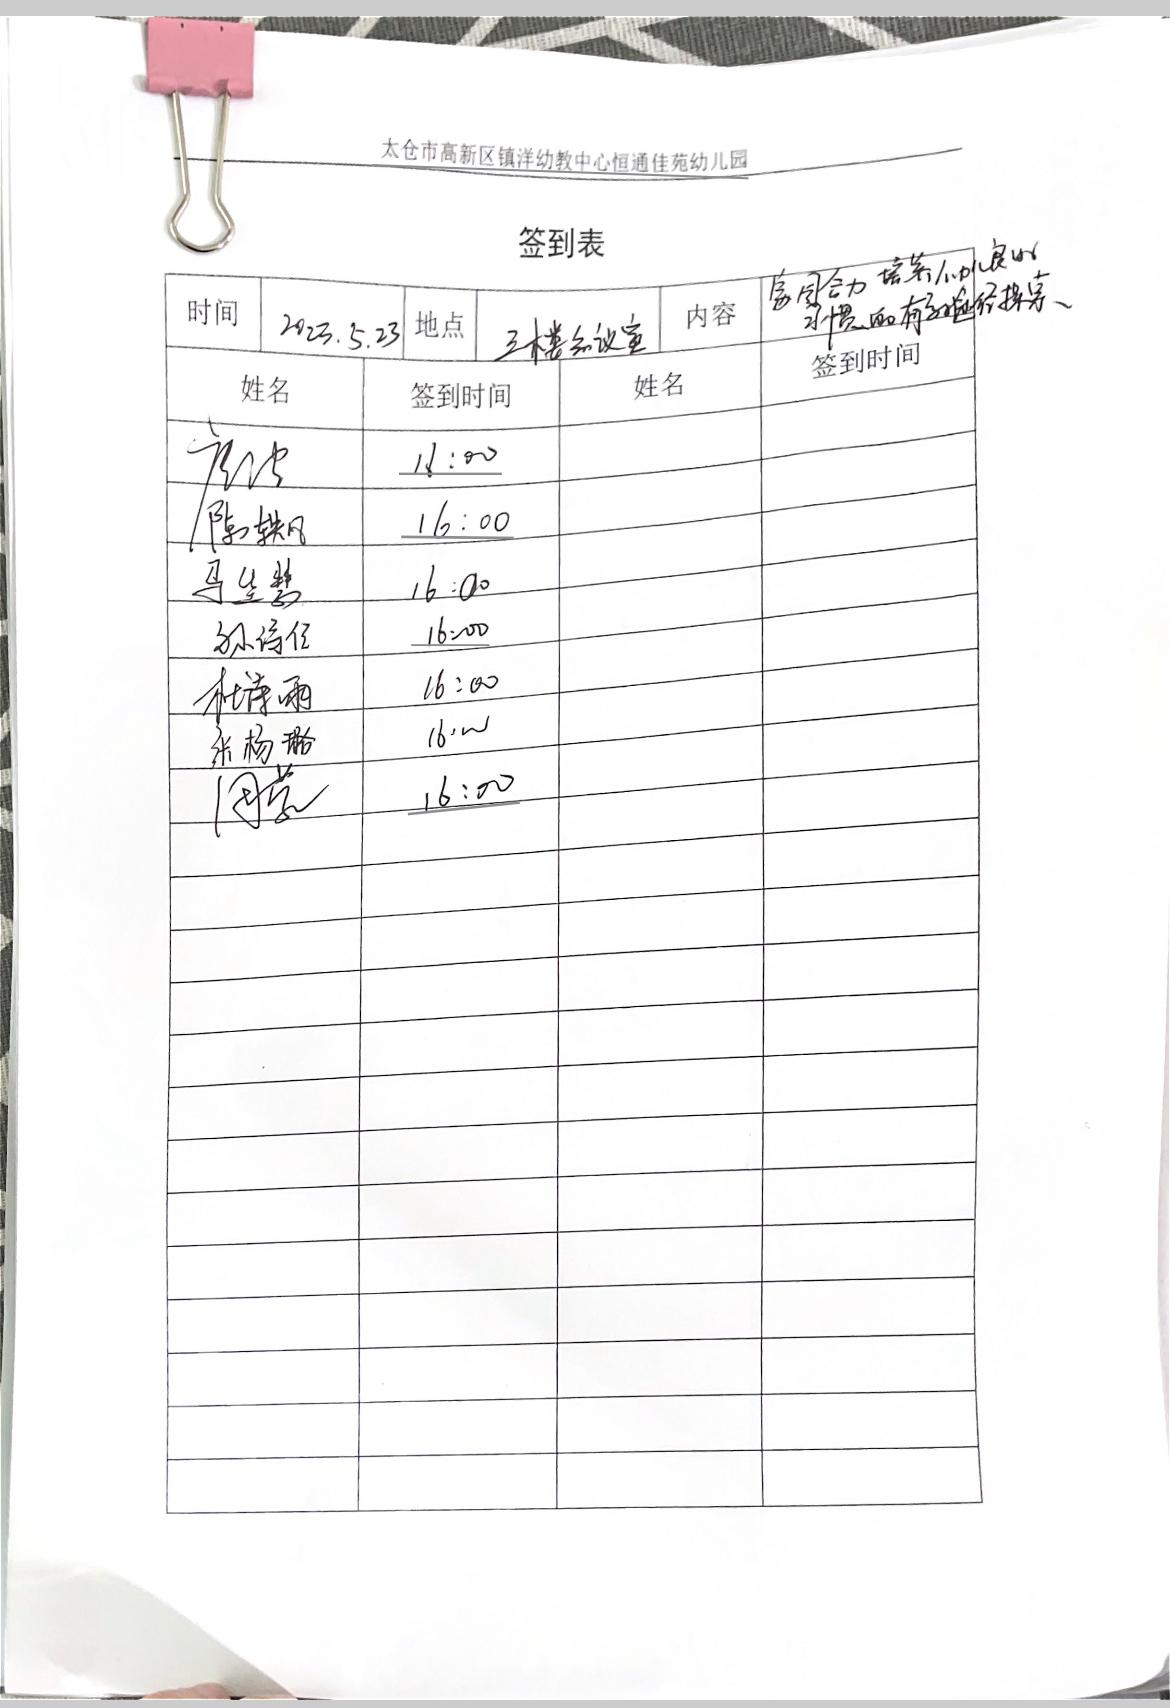 太仓市高新区镇洋幼教中心恒通佳苑幼儿园
签到表
时间 2023.5.23 地点 三楼会议室 内容 家园合力 培养小幼儿良好
习惯的有效途径探索
姓名 签到时间 姓名 签到时间
16:00
陈轶凡 16:00
马生慧 16:00
孙诗任 16:00
杜诗雨 16:00
张杨璐 16:00
周蓉 16:00